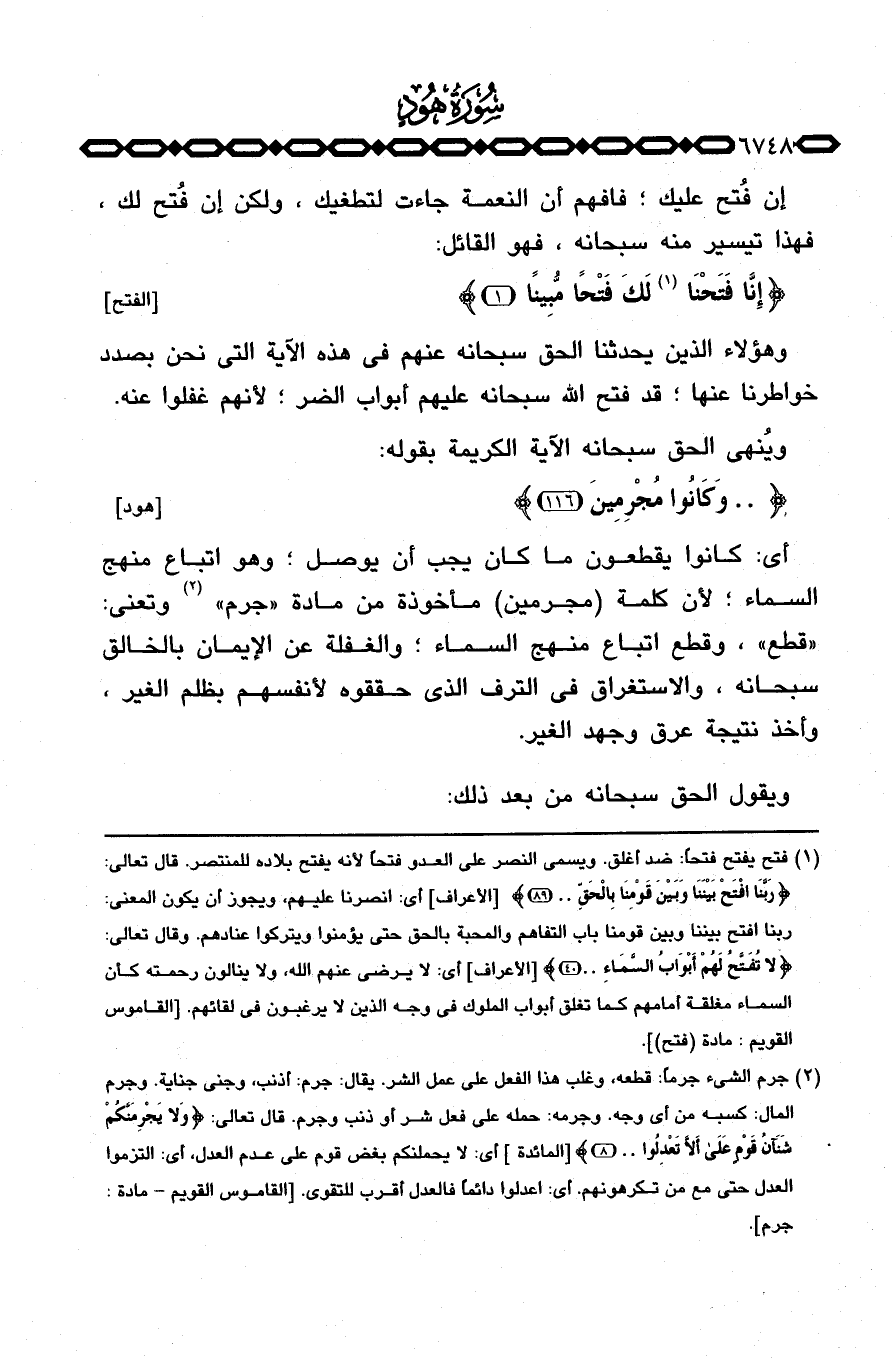 سُورَةُ هُودٍ
٦٧٤٨
إن فُتح عليك ؛ فافهم أن النعمة جاءت لتطغيك ، ولكن إن فُتح لك ،
فهذا تيسير منه سبحانه ، فهو القائل:
﴿ إِنَّا فَتَحْنَا (١) لَكَ فَتْحًا مُّبِينًا (١) ﴾ [الفتح]
وهؤلاء الذين يحدثنا الحق سبحانه عنهم فى هذه الآية التى نحن بصدد
خواطرنا عنها ؛ قد فتح الله سبحانه عليهم أبواب الضر ؛ لأنهم غفلوا عنه.
ويُنهى الحق سبحانه الآية الكريمة بقوله:
﴿ .. وَكَانُوا مُجْرِمِينَ (١١٦) ﴾ [هود]
أى: كانوا يقطعون ما كان يجب أن يوصل ؛ وهو اتباع منهج
السماء ؛ لأن كلمة (مجرمين) مأخوذة من مادة «جرم» (٢) وتعنى:
«قطع» ، وقطع اتباع منهج السماء ؛ والغفلة عن الإيمان بالخالق
سبحانه ، والاستغراق فى الترف الذى حققوه لأنفسهم بظلم الغير ،
وأخذ نتيجة عرق وجهد الغير.
ويقول الحق سبحانه من بعد ذلك:
(١) فتح يفتح فتحاً: ضد أغلق. ويسمى النصر على العدو فتحاً لأنه يفتح بلاده للمنتصر. قال تعالى:
﴿ رَبَّنَا افْتَحْ بَيْنَنَا وَبَيْنَ قَوْمِنَا بِالْحَقِّ .. (٨٩) ﴾ [الأعراف] أى: انصرنا عليهم، ويجوز أن يكون المعنى:
ربنا افتح بيننا وبين قومنا باب التفاهم والمحبة بالحق حتى يؤمنوا ويتركوا عنادهم. وقال تعالى:
﴿ لا تُفَتَّحُ لَهُمْ أَبْوَابُ السَّمَاءِ .. (٤٠) ﴾ [الأعراف] أى: لا يرضى عنهم الله، ولا ينالون رحمته كأن
السماء مغلقة أمامهم كما تغلق أبواب الملوك فى وجه الذين لا يرغبون فى لقائهم. [القاموس
القويم : مادة (فتح)].
(٢) جرم الشىء جرماً: قطعه، وغلب هذا الفعل على عمل الشر. يقال: جرم: أذنب، وجنى جناية. وجرم
المال: كسبه من أى وجه. وجرمه: حمله على فعل شر أو ذنب وجرم. قال تعالى: ﴿ وَلا يَجْرِمَنَّكُمْ
شَنَآنُ قَوْمٍ عَلَىٰ أَلاَّ تَعْدِلُوا .. (٨) ﴾ [المائدة ] أى: لا يحملنكم بغض قوم على عدم العدل، أى: التزموا
العدل حتى مع من تكرهونهم. أى: اعدلوا دائماً فالعدل أقرب للتقوى. [القاموس القويم - مادة :
جرم].